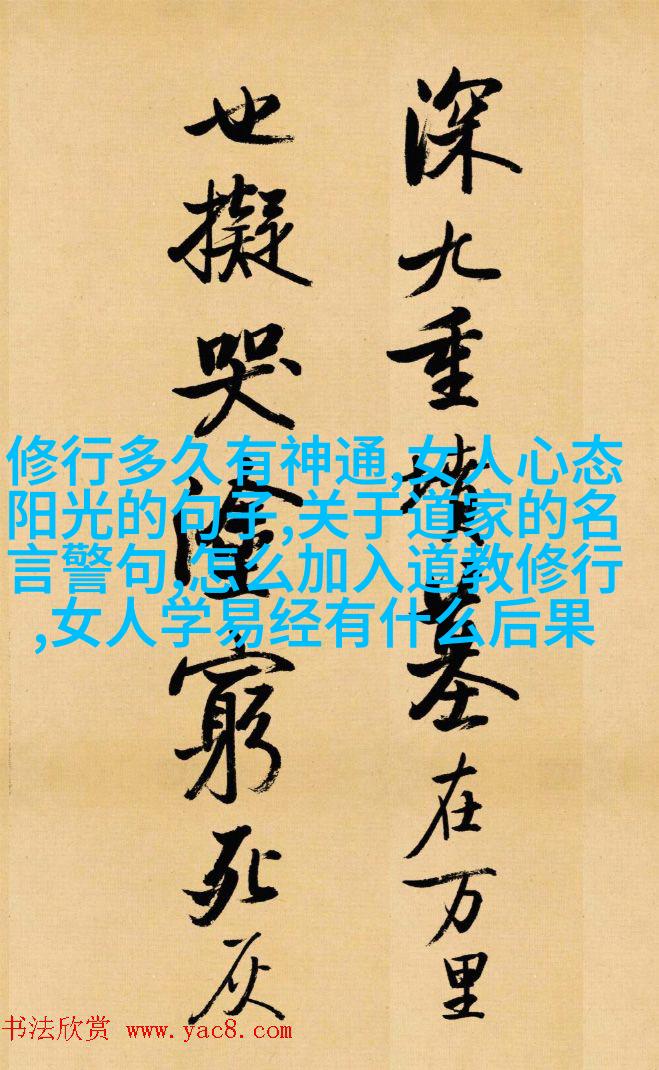 深九重墳墓在万里
也擬哭塗窮死灰
修行多久有神通,女人心态
阳光的句子,关于道家的名
言警句,怎么加入道教修行
,女人学易经有什么后果
书法欣赏 www.yac8.com